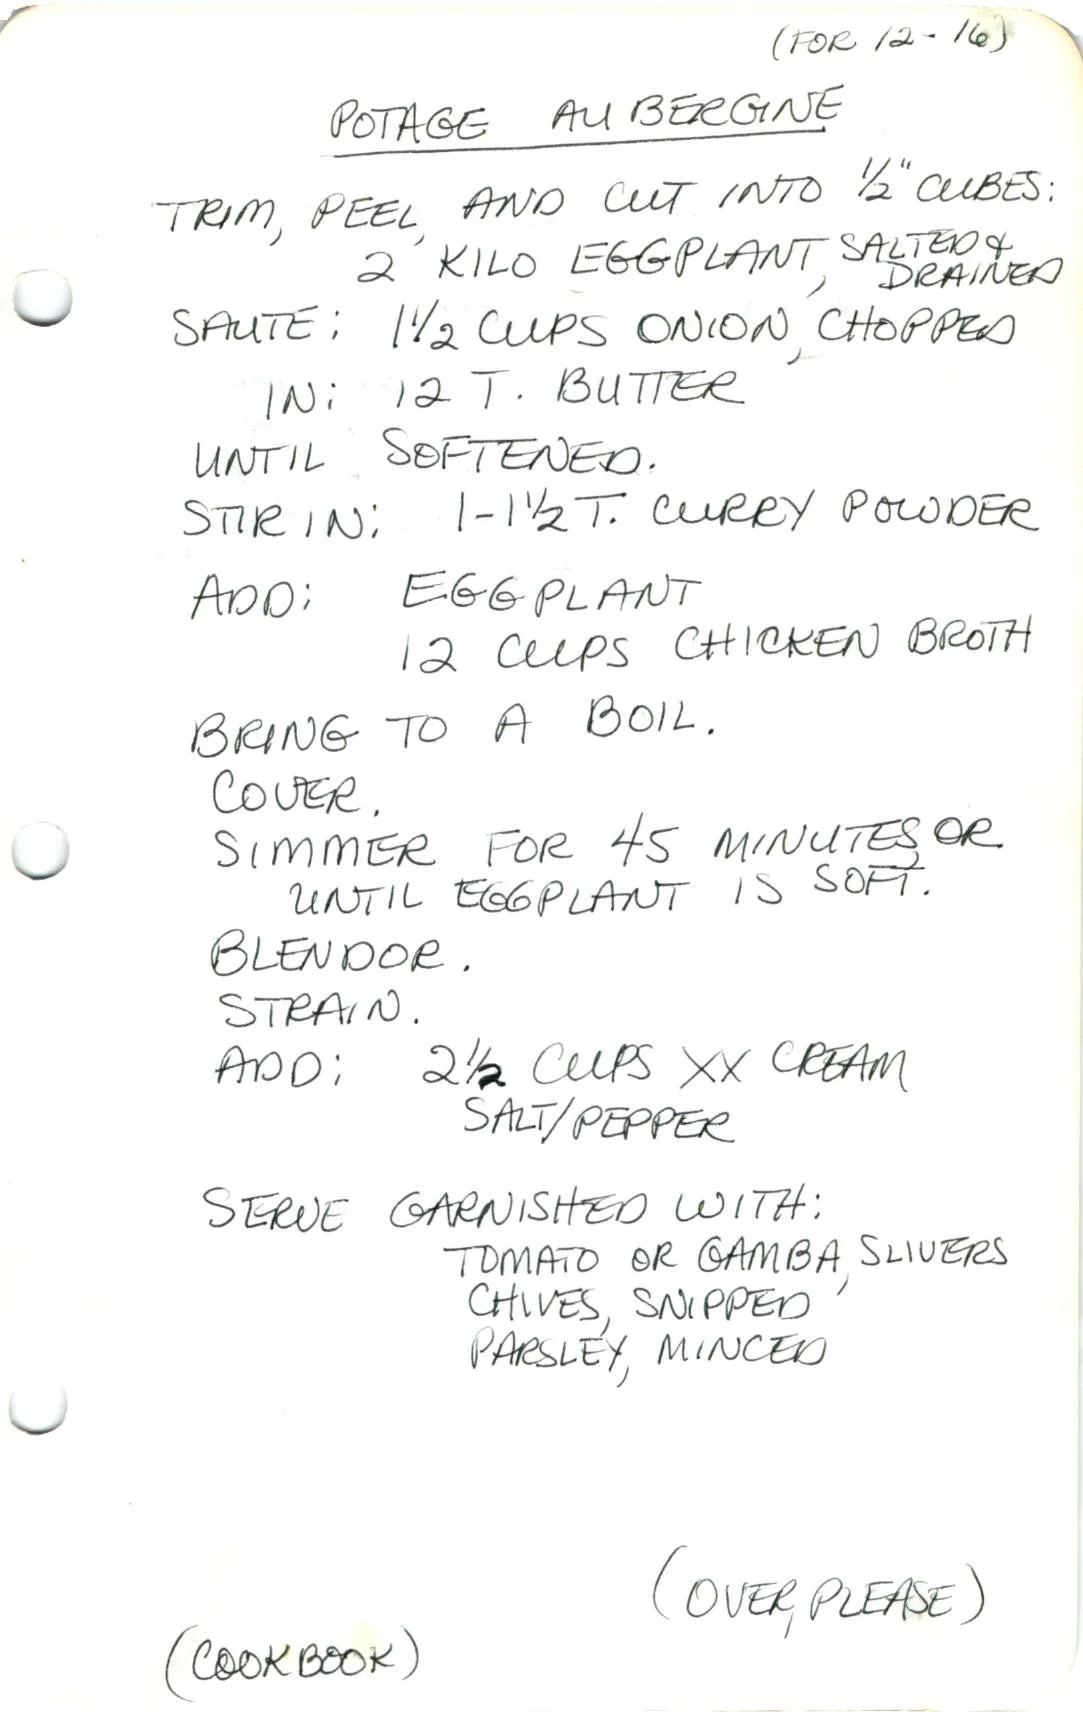 (FOR 12-16)
POTAGE AUBERGINE
TRIM, PEEL, AND CUT INTO ½" CUBES:
2 KILO EGGPLANT, SALTED &
DRAINED
SAUTE: 1½ CUPS ONION, CHOPPED
IN: 12 T. BUTTER
UNTIL SOFTENED.
STIR IN: 1-1½ T. CURRY POWDER
ADD: EGGPLANT
12 CUPS CHICKEN BROTH
BRING TO A BOIL.
COVER.
SIMMER FOR 45 MINUTES, OR
UNTIL EGGPLANT IS SOFT.
BLENDOR.
STRAIN.
ADD: 2½ CUPS XX CREAM
SALT/PEPPER
SERVE GARNISHED WITH:
TOMATO OR GAMBA, SLIVERS
CHIVES, SNIPPED
PARSLEY, MINCED
(OVER, PLEASE)
(COOKBOOK)